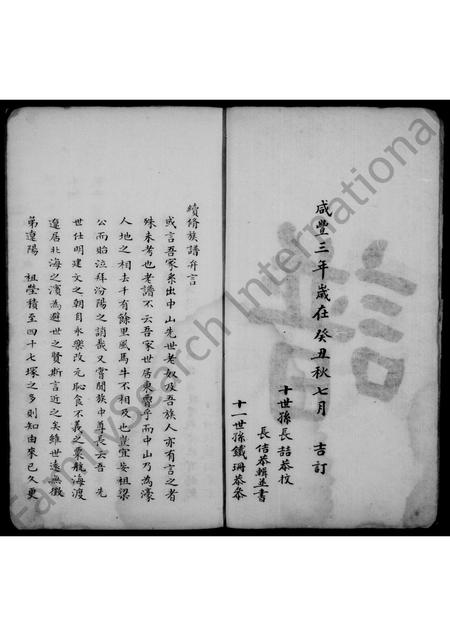 咸豐三年歲在癸丑秋七月 吉訂
十世孫長喆恭校
長佶恭輯並書
十一世孫鐵珊恭參
續脩族譜弁言
或言吾家系出中山先世老奴及吾族人亦有言之者
殊未考也老譜不云吾家世居東賈乎而中山乃為濠
人地之相去千有餘里風馬牛不相及也豈宜妄祖梁
公而貽泣拜汾陽之誚哉又嘗聞族中尊長云吾 先
世仕明建文之朝自永樂改元恥食不義之粟航海渡
遼居北海之濱為避世之賢斯言近之矣維世遠無徵
第遼陽 祖塋積至四十七塚之多則知由來已久更
FamilySearch International